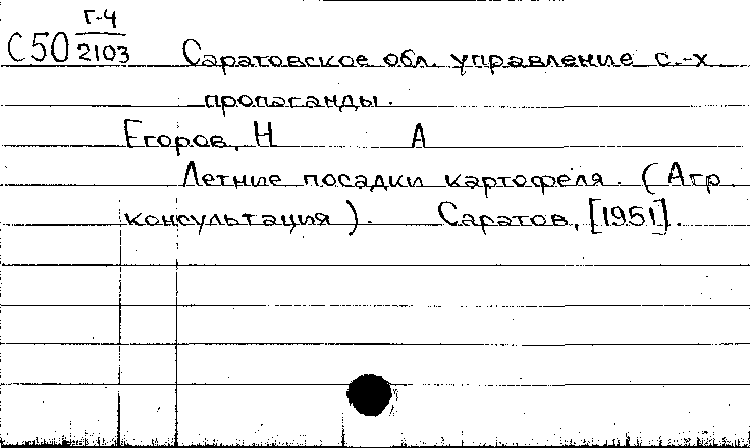 С50 Г-4/2103 Саратовское обл. управление с.-х
пропаганды.
Егоров, Н А
Летние посадки картофеля. (Агр
консультация). Саратов, [1951].